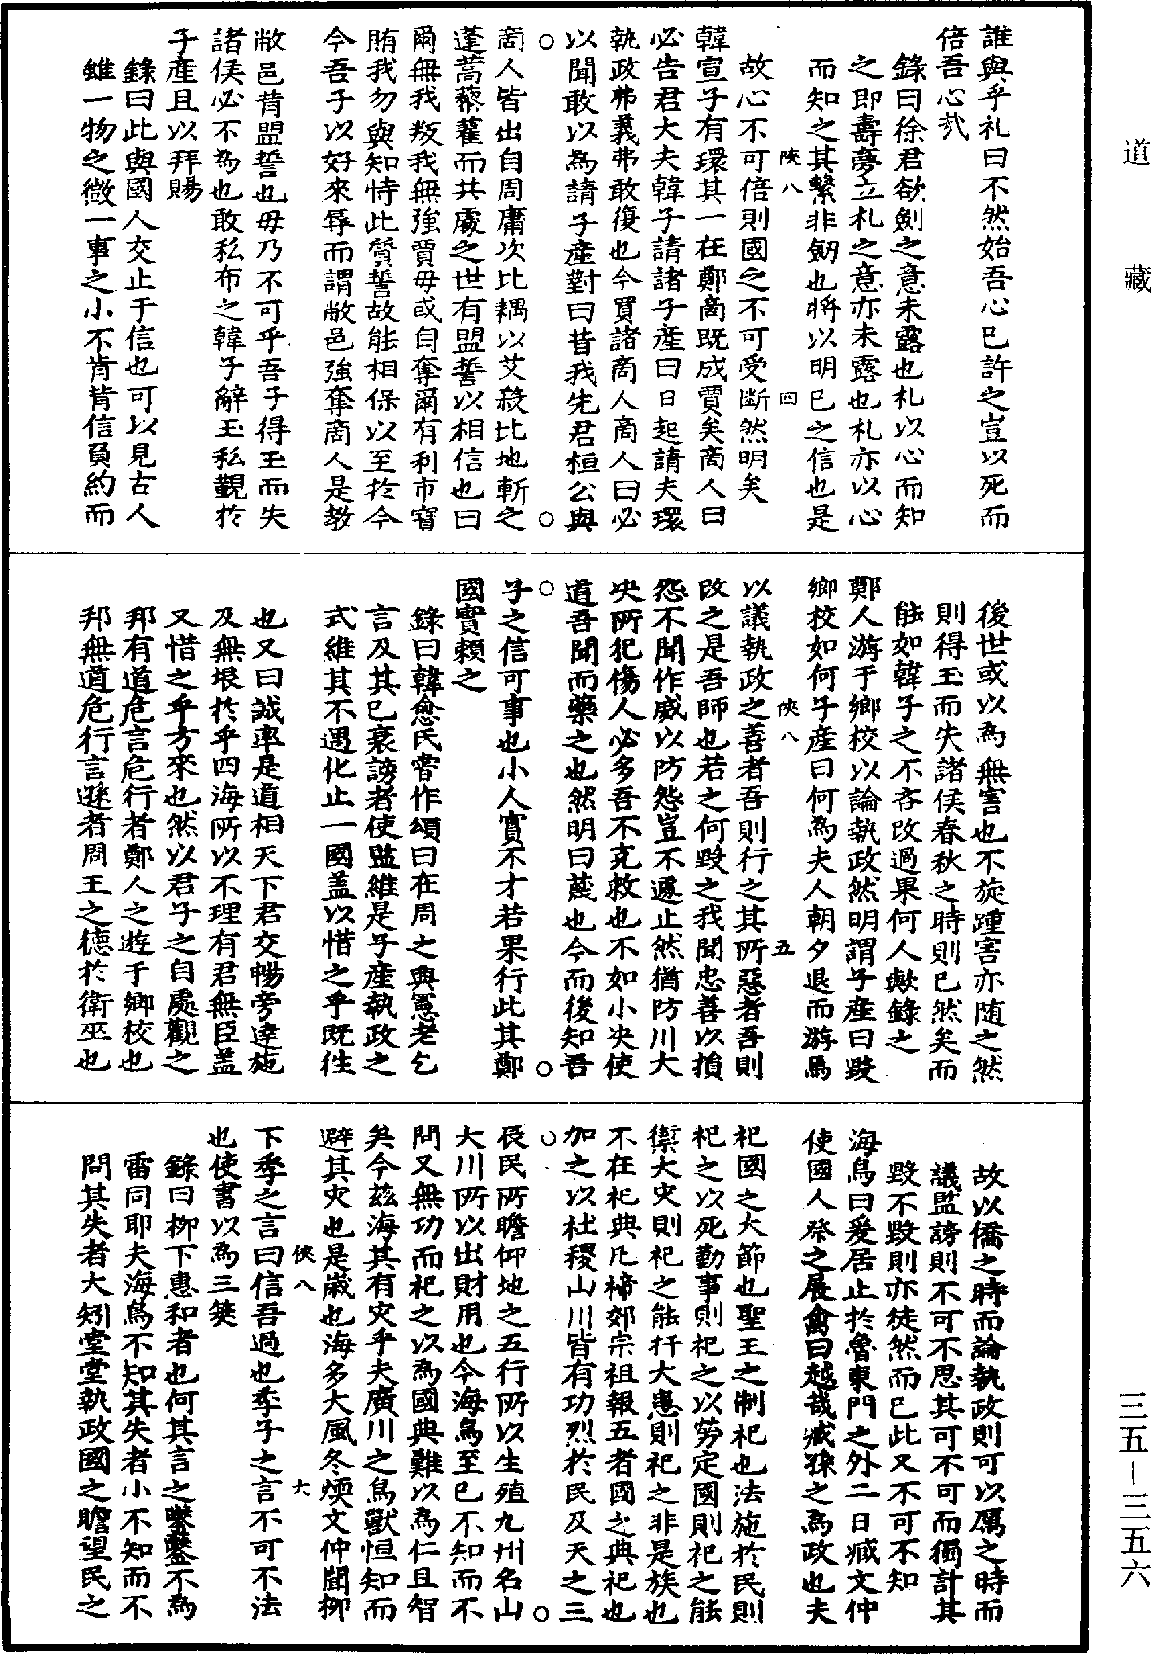 道藏
誰與乎札曰不然始吾心已許之豈以死而
倍吾心哉
錄曰徐君欲劍之意未露也札以心而知
之即壽夢立札之意亦未露也札亦以心
而知之其繫非劒也將以明已之信也是
陜八 四
故心不可倍則國之不可受斷然明矣
韓宣子有環其一在鄭商既成賈矣商人曰
必告君大夫韓子請諸子產曰日起請夫環
執政弗義弗敢復也今買諸商人商人曰必
以聞敢以為請子產對曰昔我先君桓公與
商人皆出自周庸次比耦以艾殺比地斬之
蓬蒿藜藋而共處之世有盟誓以相信也曰
爾無我叛我無強賈毋或匄奪爾有利市寶
賄我勿與知恃此質誓故能相保以至於今
今吾子以好來辱而謂敝邑強奪商人是教
敝邑背盟誓也毋乃不可乎吾子得玉而失
諸侯必不為也敢私布之韓子辭玉私覿於
子產且以拜賜
錄曰此與國人交止于信也可以見古人
雖一物之微一事之小不肯背信負約而
後世或以為無害也不旋踵害亦随之然
則得玉而失諸侯春秋之時則已然矣而
能如韓子之不吝改過果何人歟錄之
鄭人游于鄉校以論執政然明謂子產曰毀
鄉校如何子產曰何為夫人朝夕退而游焉
陜八 五
以議執政之善者吾則行之其所惡者吾則
改之是吾師也若之何毀之我聞忠善以損
怨不聞作威以防怨豈不遽止然猶防川大
决所犯傷人必多吾不克救也不如小决使
道吾聞而藥之也然明曰蔑也今而後知吾
子之信可事也小人實不才若果行此其鄭
國實賴之
錄曰韓愈氏嘗作頌曰在周之興養老乞
言及其已衰謗者使監維是子產執政之
式維其不遇化止一國盖以惜之乎既徃
也又曰誠率是道相天下君交暢旁達施
及無垠於乎四海所以不理有君無臣盖
又惜之乎方來也然以君子之自處觀之
邦有道危言危行者鄭人之遊于鄉校也
邦無道危行言遜者周王之德於衛巫也
故以僑之時而論執政則可以厲之時而
議監謗則不可不思其可不可而獨計其
毀不毀則亦徒然而已此又不可不知
海鳥曰爰居止於魯東門之外二日臧文仲
使國人祭之展禽曰越哉臧孫之為政也夫
祀國之大節也聖王之制祀也法施於民則
祀之以死勤事則祀之以勞定國則祀之能
禦大灾則祀之能扞大患則祀之非是族也
不在祀典凡禘郊宗祖報五者國之典祀也
加之以社稷山川皆有功烈於民及天之三
辰民所瞻仰地之五行所以生殖九州名山
大川所以出財用也今海鳥至已不知而不
問又無功而祀之以為國典難以為仁且智
矣今茲海其有灾乎夫廣川之鳥獸恒知而
避其灾也是歲也海多大風冬煗文仲聞柳
陜八 六
下季之言曰信吾過也季子之言不可不法
也使書以為三筴
錄曰柳下惠和者也何其言之鑿鑿不為
雷同耶夫海鳥不知其失者小不知而不
問其失者大矧堂堂執政國之瞻望民之
三五－三五六